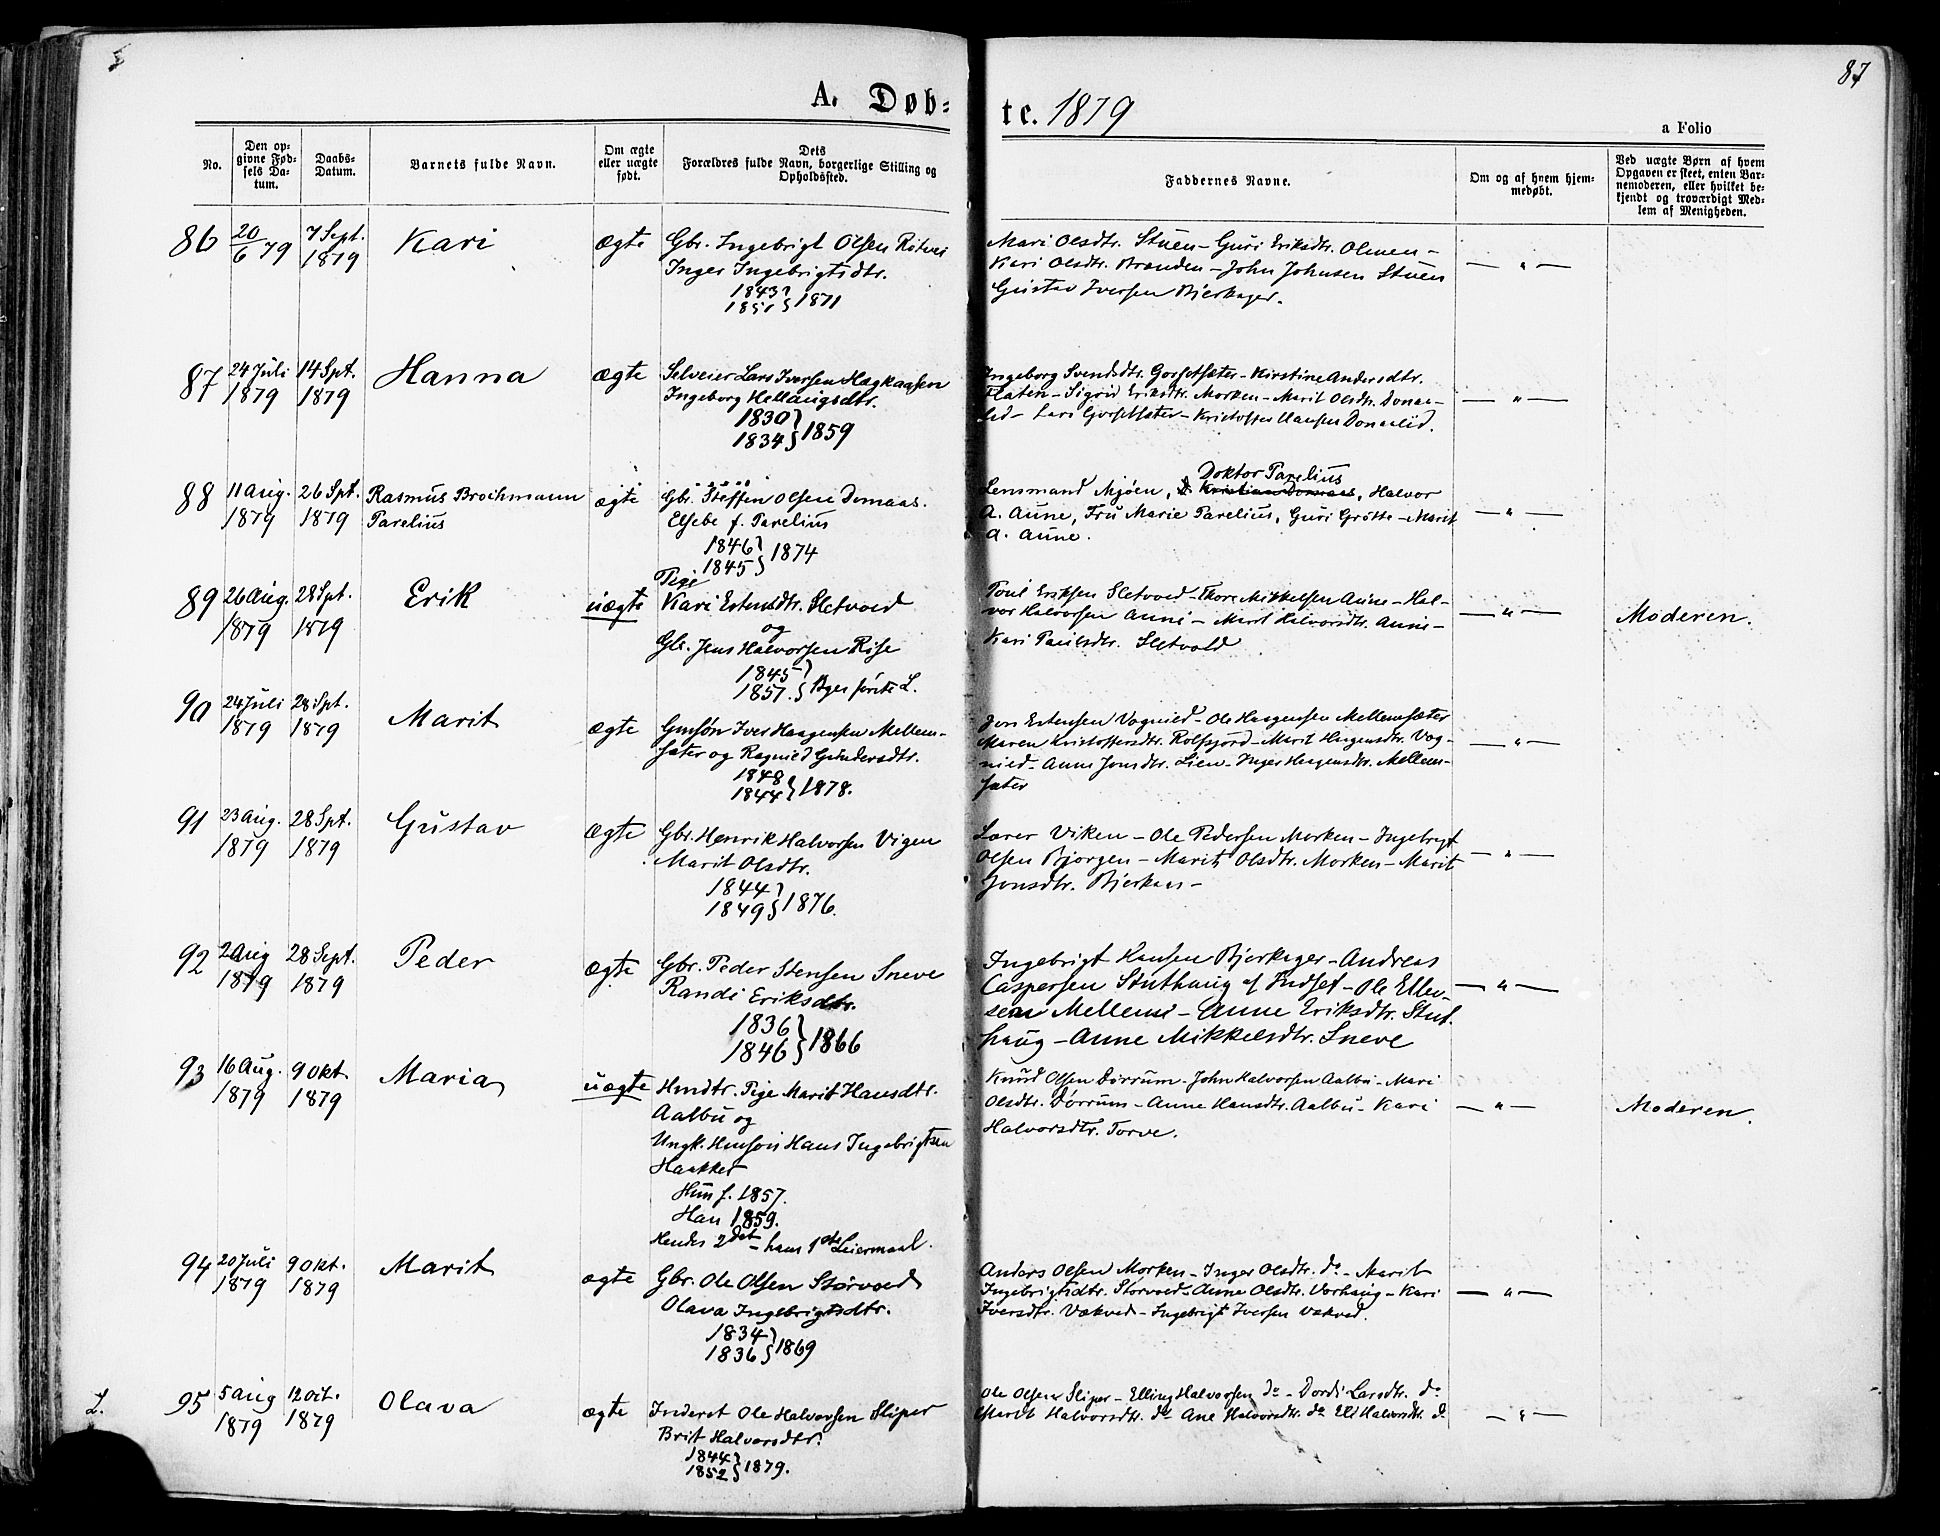 87
A. Døb=
te. 1879
a Folio
No.
Den op-
givne Fød-
sels Da-
tum.
Daabs-
Datum.
Barnets fulde Navn.
Om ægte
eller uægte
født.
Dets
Forældres fulde Navn, borgerlige Stilling og
Opholdssted.
Faddernes Navne.
Om og af hvem hjem-
medøbt.
Ved uægte Børn af hvem
Opgaven er skeet, enten Bar-
nemoderen, eller hvilket be-
kjendt og troværdigt Med-
lem af Menigheden.
86
20/6 79
7 Sept.
1879
Kari
ægte
Gbr. Ingebrigt Olsen
Inger Ingebrigtsdtr.
1843
1851 } 1871
Mari Olsdtr. Stuen - Guri Eriksdtr. Olmen -
Kari Olsdtr. Brænden - John Johnsen Stuen
Gustav Iversen Bjerkager.
— " —
87
24 Juli
1879
14 Spt.
1879
Hanna
ægte
Selveier Lars Iversen
Ingeborg Hellaugsdtr.
1830
1834 } 1859
Ingeborg Svendsdtr. Gorsetsæter - Kirstine Andersdtr.
Flaten - Sigrid Eriksdtr. Morken - Marit Olsdtr. Donaa-
lid - Lars Gorsetsæter - Kristoffer Hansen Donaalid.
— " —
88
11 Aug.
1879
26 Spt.
1879
Rasmus Brochmann
Parelius
ægte
Gbr. Steffen Olsen Domaas.
Elsebe f. Parelius
1846
1845 } 1874
Doktor Parelius
Lensmand Mjøen, Kristian Domaas, Halvor
A. Aune, Fru Marie Parelius, Guri Grøtte - Marit
A. Aune.
— " —
89
26 Aug.
1879
28 Spt.
1879
Erik
uægte
Pige
Kari Estensdtr. Sletvold
og
Gbr. Jens Halvorsen Rise
1845
1857. } Bges første L.
Poul Eriksen Sletvold - Thore Mikkelsen Aune - Hal-
vor Halvorsen Aune - Marit Halvorsdtr. Aune -
Kari Paulsdtr. Sletvold
— " —
Moderen.
90
24 Juli
1879
28 Spt.
1879
Marit
ægte
Gmsøn Iver Haagensen Mellem-
sæter og Ragnild Gundersdtr.
1848
1844 } 1878.
Jon Estensen Vognild - Ole Haagensen Mellemsæter
Maren Kristoffersdtr. Rolfsjord - Marit Haagensdtr. Vog-
nild - Anne Jonsdtr. Lien - Inger Haagensdtr. Mellem-
sæter
— " —
91
23 Aug.
1879
28 Spt.
1879
Gustav
ægte
Gbr. Henrik Halvorsen Vigen
Marit Olsdtr.
1844
1849 } 1876.
Lærer Viken - Ole Pedersen Morken - Ingebrigt
Olsen Bjørgen - Marit Olsdtr. Morken - Marit
Jonsdtr. Bjerkaas -
— " —
92
2 Aug
1879
28 Sept.
1879
Peder
ægte
Gbr. Peder Stensen Sneve
Randi Eriksdtr.
1836
1846 } 1866
Ingebrigt Hansen Bjerkager - Andreas
Caspersen Stuthaug af Indset - Ole Elle-
sen Mellemi - Anne Eriksdtr. Stut-
haug - Anne Mikkelsdtr. Sneve
— " —
93
16 Aug.
1879
9 Okt.
1879
Maria
uægte
Hmdtr. Pige Marit Hansdtr.
Aalbu og
Ungk. Hmsøn Hans Ingebrigtsen
Haakker
Hun f. 1857.
Han 1859.
Hendes 2det - hans 1ste Leiermaal.
Knud Olsen Dørrum - John Halvorsen Aalbu - Mari
Olsdtr. Dørrum - Anne Hansdtr. Aalbu - Kari
Halvorsdtr. Torve.
— " —
Moderen.
94
20 Juli
1879
9 Okt.
1879
Marit
ægte
Gbr. Ole Olsen Størvold
Olava Ingebrigtsdtr.
1834
1836 } 1869
Anders Olsen Morken - Inger Olsdtr. do - Marit
Ingebrigtsdtr. Størvold - Anne Olsdtr. Vorhaug - Kari
Iversdtr. Vækved - Ingebrigt Iversen Vækved.
— " —
L.
95
5 Aug
1879
12 Oct.
1879
Olava
ægte
Inderst Ole Halvorsen Sliper
Brit Halvorsdtr.
1844
1852 } 1879.
Ole Olsen Sliper - Elling Halvorsen do - Dordi Larsdtr. do
Marit Halvorsdtr. do Ane Halvorsdtr. do Eli Halvorsdtr. d.
— " —